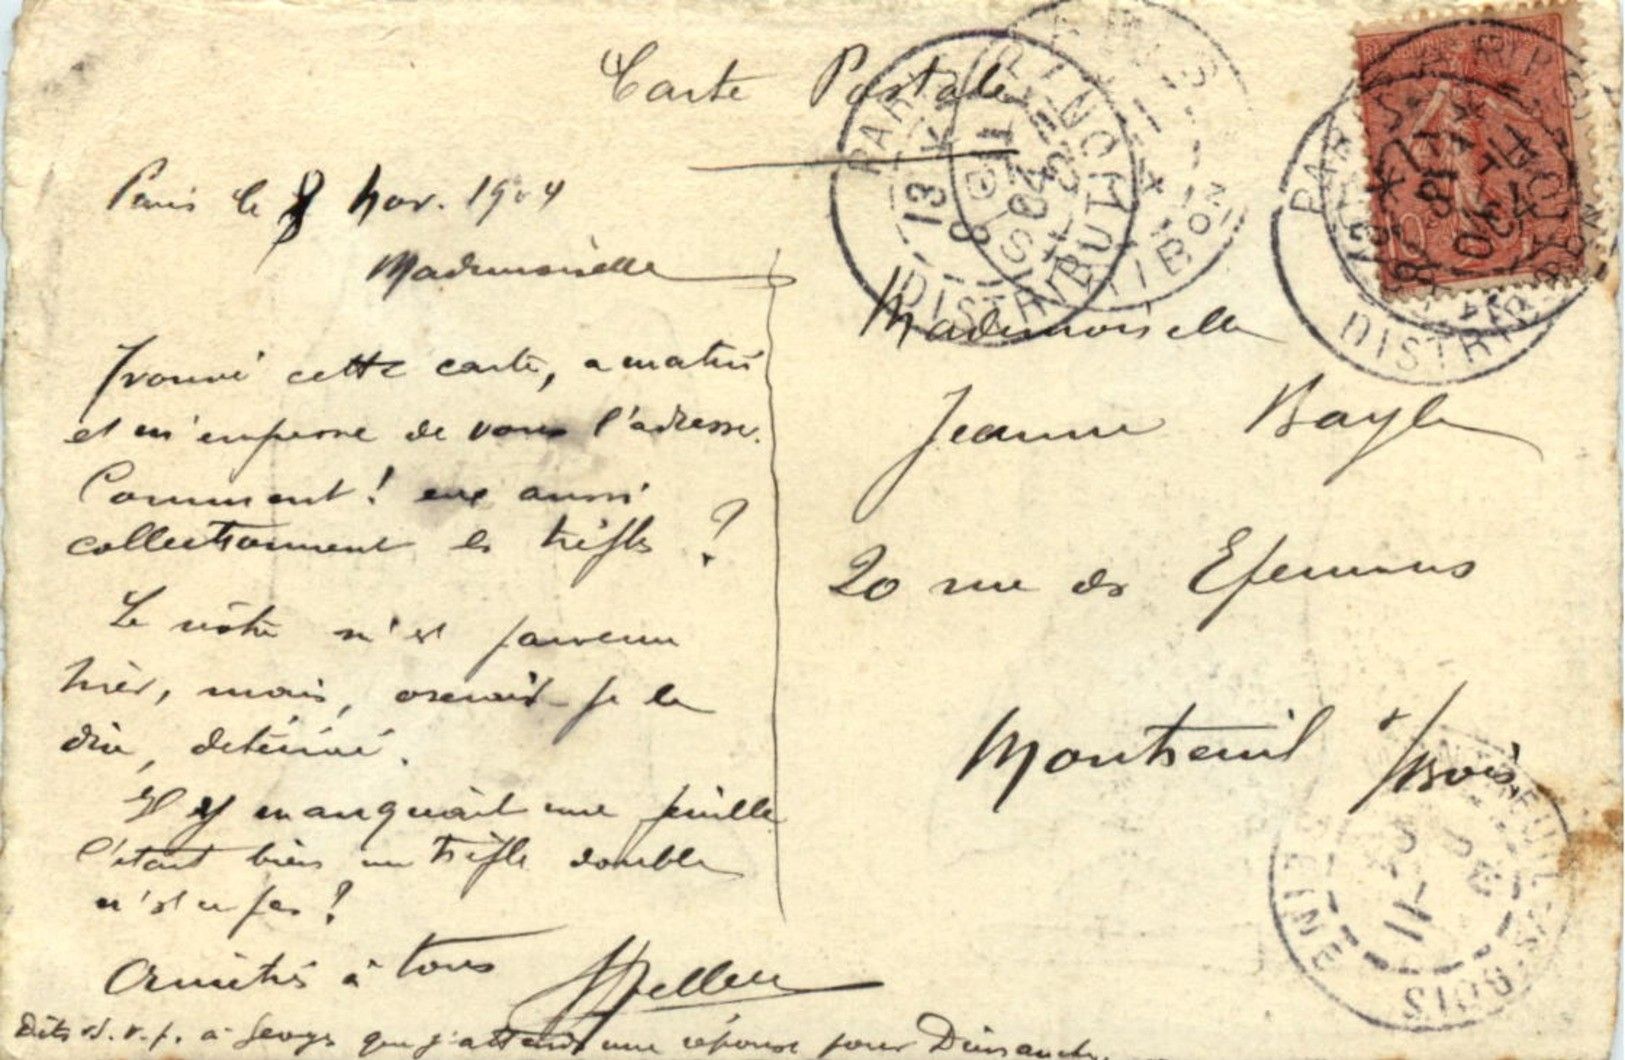 Carte Postale
Paris le 8 Nov. 1904
Mademoiselle
Trouvé cette carte, ce matin
et m'empresse de vous l'adresser.
Comment! eux aussi
collectionnent les trèfles ?
Le vôtre m'est parvenu
hier, mais, oserais-je le
dire, détérioré.
Il y manquait une feuille
C'était bien un trèfle double
n'est ce pas ?
Amitiés à tous
Dites s.v.p. à Georges que j'attends une réponse pour Dimanche.
Mademoiselle
Jeanne Bayle
20 rue des
Montreuil s/Bois
PARIS
DISTRIBUTION
13
8
11
04
PARIS
DISTRIBUTION
MONTREUIL-S-BOIS
SEINE
11